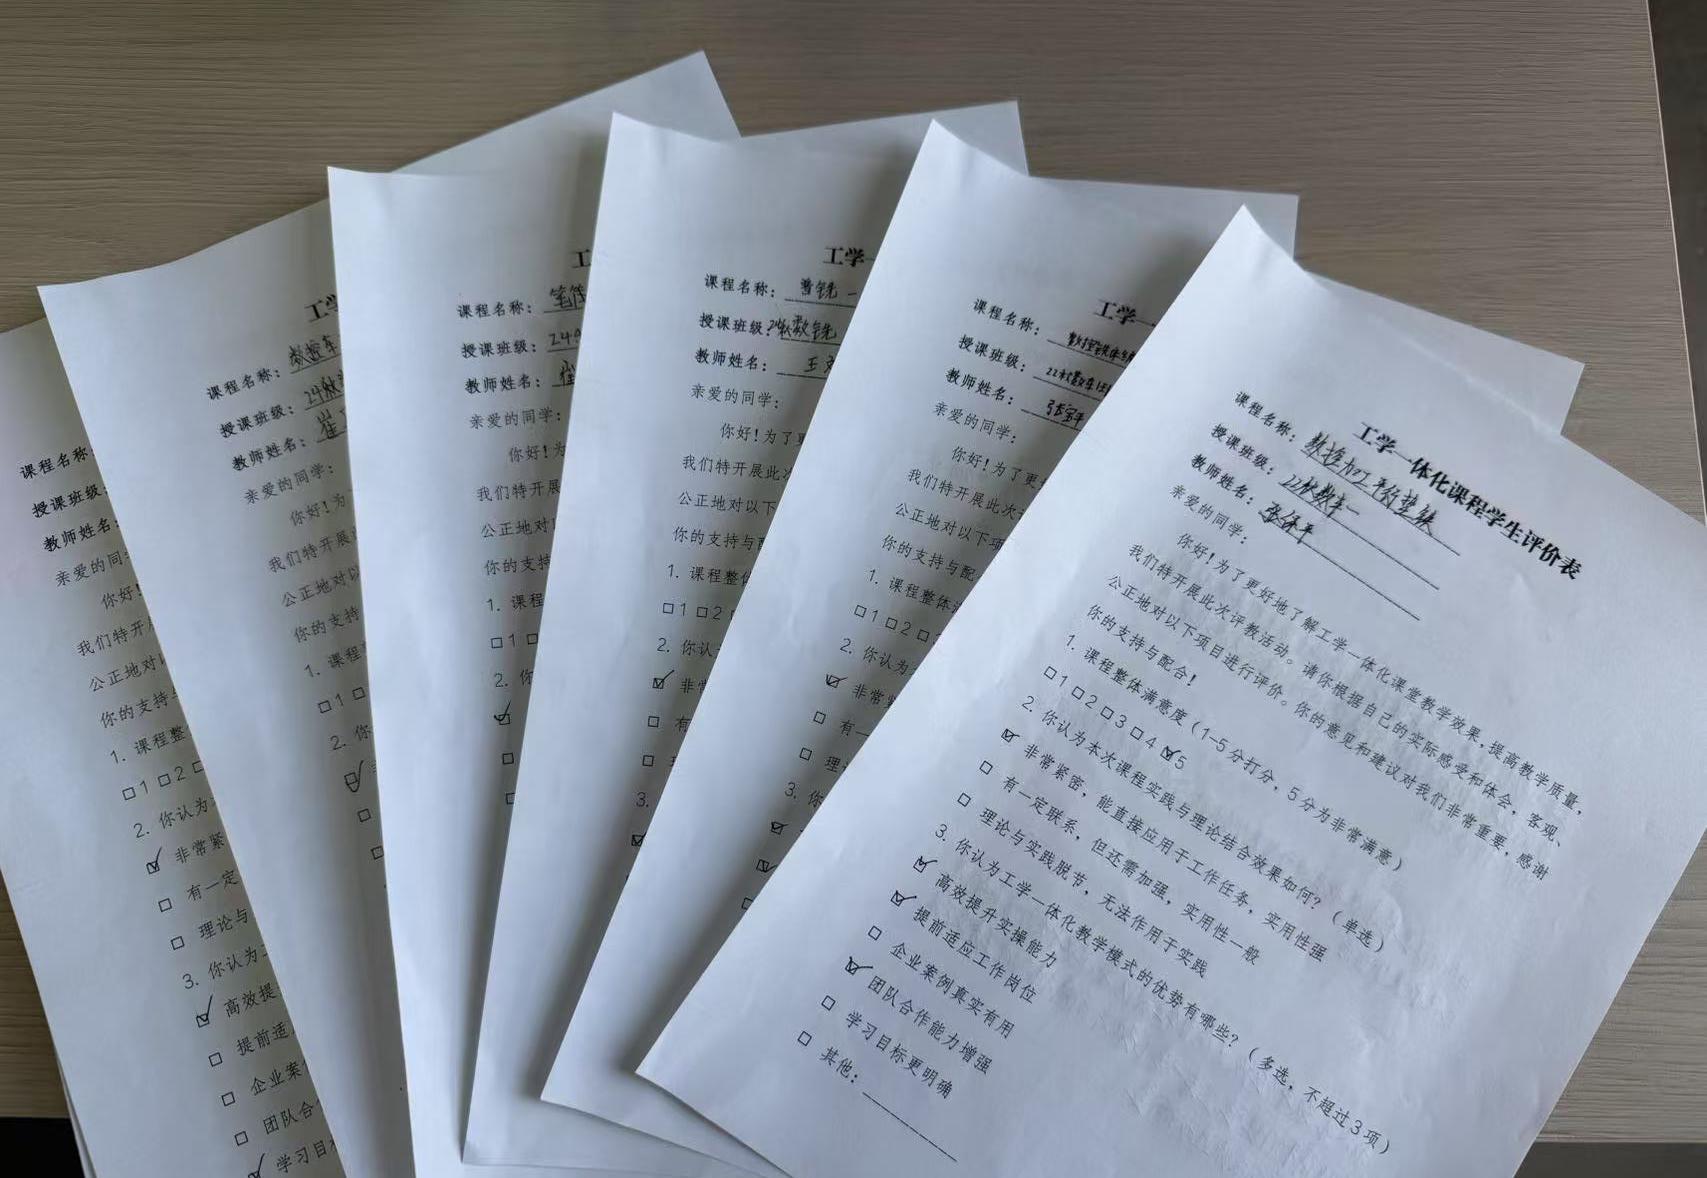 课程名称:
授课班级:
教师姓名:
亲爱的同
你好!
我们特开
公正地对
你的支持
1. 课程整
□1 □2 □
2. 你认为
☑ 非常紧
□ 有一定
□ 理论与
3. 你认为
☑ 高效提
□ 提前适
□ 企业案
□ 团队合
☑ 学习目
工学
课程名称: 数控车
授课班级: 24秋
教师姓名: 崔
亲爱的同学:
你好!为
我们特开展
公正地对以
你的支持
1. 课程
□1 □
2. 你
☑
□
□
工
课程名称:
授课班级: 24
教师姓名: 崔
亲爱的同学:
你好!为
我们特开展
公正地对
你的支持
1. 课程
□1 □
2. 你
☑
□
□
工学一
课程名称: 普铣一
授课班级: 24秋数铣
教师姓名: 王
亲爱的同学:
你好!为了
我们特开展此
公正地对以下
你的支持与
1. 课程整
□1 □2
2. 你认
☑ 非常
□ 有
□
3.
☑
工学一
课程名称: 数控
授课班级: 22秋数车
教师姓名: 张
亲爱的同学:
你好!为了更
我们特开展此次
公正地对以下项
你的支持与配
1. 课程整体
□1 □2 □
2. 你认为
☑ 非常紧
□ 有一
□ 理
3. 你
☑
☑
□
工学一体化课程学生评价表
课程名称: 数控加工平行垫铁
授课班级: 22秋数车一
教师姓名: 张保平
亲爱的同学:
你好!为了更好地了解工学一体化课堂教学效果,提高教学质量,
我们特开展此次评教活动。请你根据自己的实际感受和体会,客观、
公正地对以下项目进行评价。你的意见和建议对我们非常重要,感谢
你的支持与配合!
1. 课程整体满意度(1-5分打分,5分为非常满意)
□1 □2 □3 □4 ☑5
2. 你认为本次课程实践与理论结合效果如何?(单选)
☑ 非常紧密,能直接应用于工作任务,实用性强
□ 有一定联系,但还需加强,实用性一般
□ 理论与实践脱节,无法作用于实践
3. 你认为工学一体化教学模式的优势有哪些?(多选,不超过3项)
☑ 高效提升实操能力
☑ 提前适应工作岗位
□ 企业案例真实有用
☑ 团队合作能力增强
□ 学习目标更明确
□ 其他: